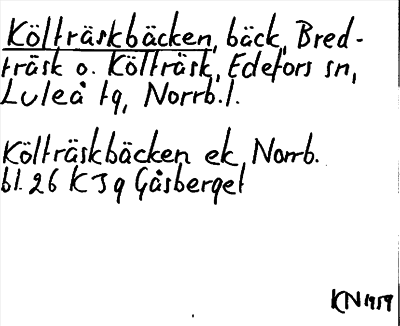 Költräskbäcken, bäck, Bred-
träsk o. Költräsk, Edefors sn,
Luleå tg, Norrb.l.
Költräskbäcken ek Norrb.
bl. 26 K J g Gåsberget
KN 1959